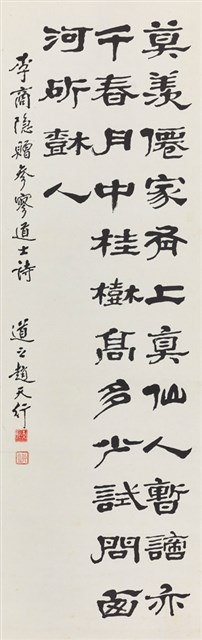 莫羨僊家有上真仙人暫謫亦
千春月中桂樹高多少試問西
河斫樹人
李商隐贈參寥道士詩 道之趙天行